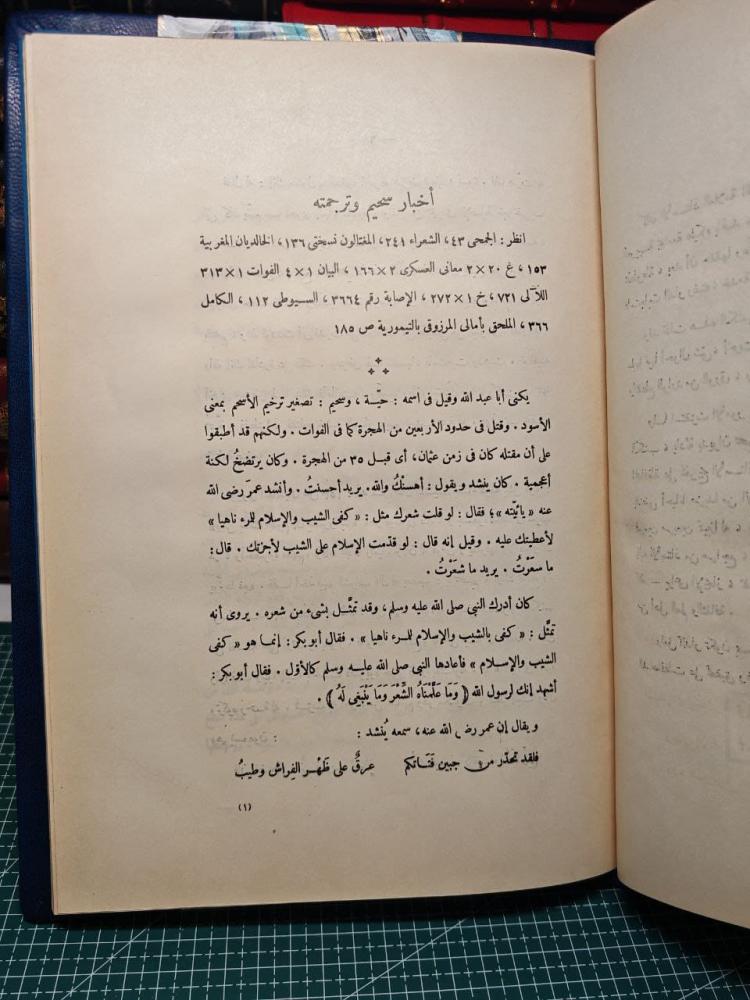 أخبار سحيم وترجمته
انظر : الجمحى ٤٣، الشعراء ٢٤١، المغتالون نسختى ١٣٦، الخالديان المغربية
١٥٣، غ ٢٠ × ٢ معانى العسكرى ٢ × ١٦٦، البيان ١ × ٤ الفوات ١ × ٣١٣
اللآلى ٧٢١، خ ١ × ٢٧٢، الإصابة رقم ٣٦٦٤، السيوطى ١١٢، الكامل
٣٦٦، الملحق بأمالى المرزوقى بالتيمورية ص ١٨٥
يكنى أبا عبد الله وقيل فى اسمه : حيّة ، وسحيم : تصغير ترخيم الأسحم بمعنى
الأسود . وقتل فى حدود الأربعين من الهجرة كما فى الفوات . ولكنهم قد أطبقوا
على أن مقتله كان فى زمن عثمان، أى قبل ٣٥ من الهجرة . وكان يرتضخُ لكنة
أعجمية . كان ينشد ويقول : أهسنْكُ والله. يريد أحسنتُ . وأنشد عمرَ رضى الله
عنه «يائيّته»؛ فقال : لو قلت شعرك مثل : «كفى الشيب والإسلام للمرء ناهيا»
لأعطيتك عليه . وقيل إنه قال : لو قدّمت الإسلام على الشيب لأجزتك . قال :
ما سعَرْتُ . يريد ما شعَرْتُ .
كان أدرك النبى صلى الله عليه وسلم، وقد تمثّل بشىء من شعره . يروى أنه
تمثّل : «كفى بالشيب والإسلام للمرء ناهيا» . فقال أبو بكر : إنما هو «كفى
الشيب والإسلام» فأعادها النبى صلى الله عليه وسلم كالأول . فقال أبو بكر :
أشهد إنك لرسول الله ﴿وَمَا عَلَّمْنَاهُ الشِّعْرَ وَمَا يَنْبَغِى لَهُ﴾ .
ويقال إن عمر رضى الله عنه، سمعه يُنشد :
فلقد تحدّر من جبين فَتَاتكم عرقٌ على ظَهْر الفراش وطيبُ
(١)